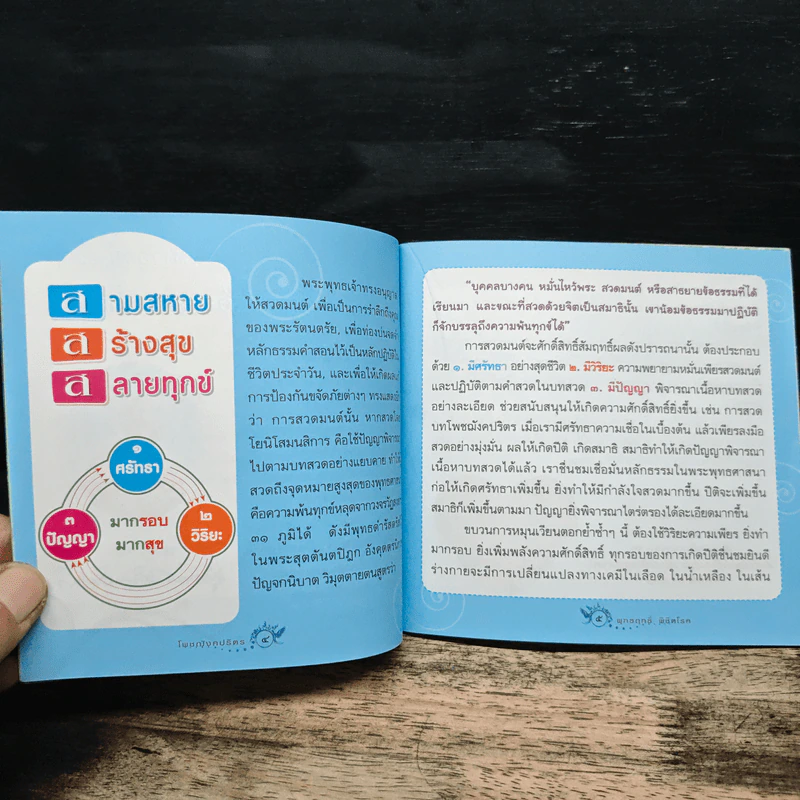 สามสหาย
สร้างสุข
สลายทุกข์
๑
ศรัทธา
๓
ปัญญา
มากรอบ
มากสุข
๒
วิริยะ
พระพุทธเจ้าทรงอนุญาต
ให้สวดมนต์ เพื่อเป็นการรำลึกถึงคุณ
ของพระรัตนตรัย, เพื่อท่องบ่นจดจำ
หลักธรรมคำสอนไว้เป็นหลักปฏิบัติใน
ชีวิตประจำวัน, และเพื่อให้เกิดผล
การป้องกันขจัดภัยต่างๆ ทรงแสดง
ว่า การสวดมนต์นั้น หากสวดโดย
โยนิโสมนสิการ คือใช้ปัญญาพิจารณา
ไปตามบทสวดอย่างแยบคาย ทำให้
สวดถึงจุดหมายสูงสุดของพุทธศาสนา
คือความพ้นทุกข์หลุดจากวงจรวัฏสงสาร
๓๑ ภูมิได้ ดังมีพุทธดำรัสตรัส
ในพระสุตตันตปิฎก อังคุตตรนิกาย
ปัญจกนิบาต วิมุตตายตนสูตรว่า
โพชฌังคปริตร ๔
"บุคคลบางคน หมั่นไหว้พระ สวดมนต์ หรือสาธยายข้อธรรมที่ได้
เรียนมา และขณะที่สวดด้วยจิตเป็นสมาธินั้น เขาน้อมข้อธรรมมาปฏิบัติ
ก็จักบรรลุถึงความพ้นทุกข์ได้"
การสวดมนต์จะศักดิ์สิทธิ์สัมฤทธิ์ผลดังปรารถนานั้น ต้องประกอบ
ด้วย ๑. มีศรัทธา อย่างสุดชีวิต ๒. มีวิริยะ ความพยายามหมั่นเพียรสวดมนต์
และปฏิบัติตามคำสวดในบทสวด ๓. มีปัญญา พิจารณาเนื้อหาบทสวด
อย่างละเอียด ช่วยสนับสนุนให้เกิดความศักดิ์สิทธิ์ยิ่งขึ้น เช่น การสวด
บทโพชฌังคปริตร เมื่อเรามีศรัทธาความเชื่อในเบื้องต้น แล้วเพียรลงมือ
สวดอย่างมุ่งมั่น ผลให้เกิดปีติ เกิดสมาธิ สมาธิทำให้เกิดปัญญาพิจารณา
เนื้อหาบทสวดได้แล้ว เราชื่นชมเชื่อมั่นหลักธรรมในพระพุทธศาสนา
ก่อให้เกิดศรัทธาเพิ่มขึ้น ยิ่งทำให้มีกำลังใจสวดมากขึ้น ปีติจะเพิ่มขึ้น
สมาธิก็เพิ่มขึ้นตามมา ปัญญายิ่งพิจารณาไตร่ตรองได้ละเอียดมากขึ้น
ขบวนการหมุนเวียนตอกย้ำซ้ำๆ นี้ ต้องใช้วิริยะความเพียร ยิ่งทำ
มากรอบ ยิ่งเพิ่มพลังความศักดิ์สิทธิ์ ทุกรอบของการเกิดปีติชื่นชมยินดี
ร่างกายจะมีการเปลี่ยนแปลงทางเคมีในเลือด ในน้ำเหลือง ในเส้น
๕ พุทธฤทธิ์ พิชิตโรค